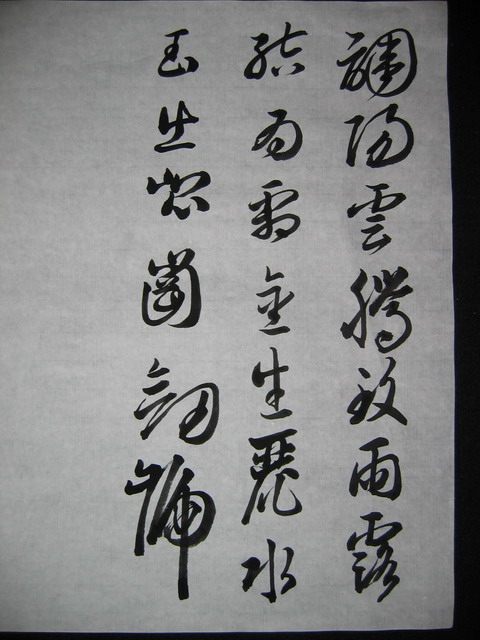 調陽雲騰致雨露
結為霜金生麗水
玉出崑崗劍號